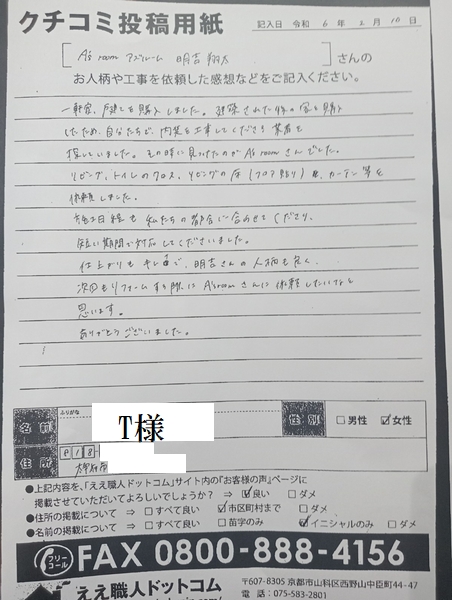 クチコミ投稿用紙
記入日 令和 6年 2月 10日
[ A's room アズルーム 明吉 翔太 ] さんの
お人柄や工事を依頼した感想などをご記入ください。
一軒家、戸建を購入しました。建築された時の家を購入
したため、自分たちで、内装を工事してくださる業者を
探していました。その時に見つけたのがA's roomさんでした。
リビング、トイレのクロス、リビングの床(フロア貼り)、カーテン等を
依頼しました。
も私たちの都合に合わせてくださり、
短い期間で対応してくださいました。
仕上がりもキレイで、明吉さんの人柄も良く、
次回もリフォームする際にA's roomさんに依頼したいなと
思います。
ありがとうございました。
ふりがな
名前 T様
性別 □男性 ☑女性
住所 618-
大阪府
●上記内容を、「ええ職人ドットコム」サイト内の『お客様の声』ページに
掲載させていただいてよろしいでしょうか? ⇒ ☑良い □ダメ
●住所の掲載について ⇒ □すべて良い ☑市区町村まで □ダメ
●名前の掲載について ⇒ □すべて良い □苗字のみ ☑イニシャルのみ □ダメ
フリーコール FAX 0800-888-4156
ええ職人ドットコム
〒607-8305 京都市山科区西野山中臣町44-47
電話:075-583-2801